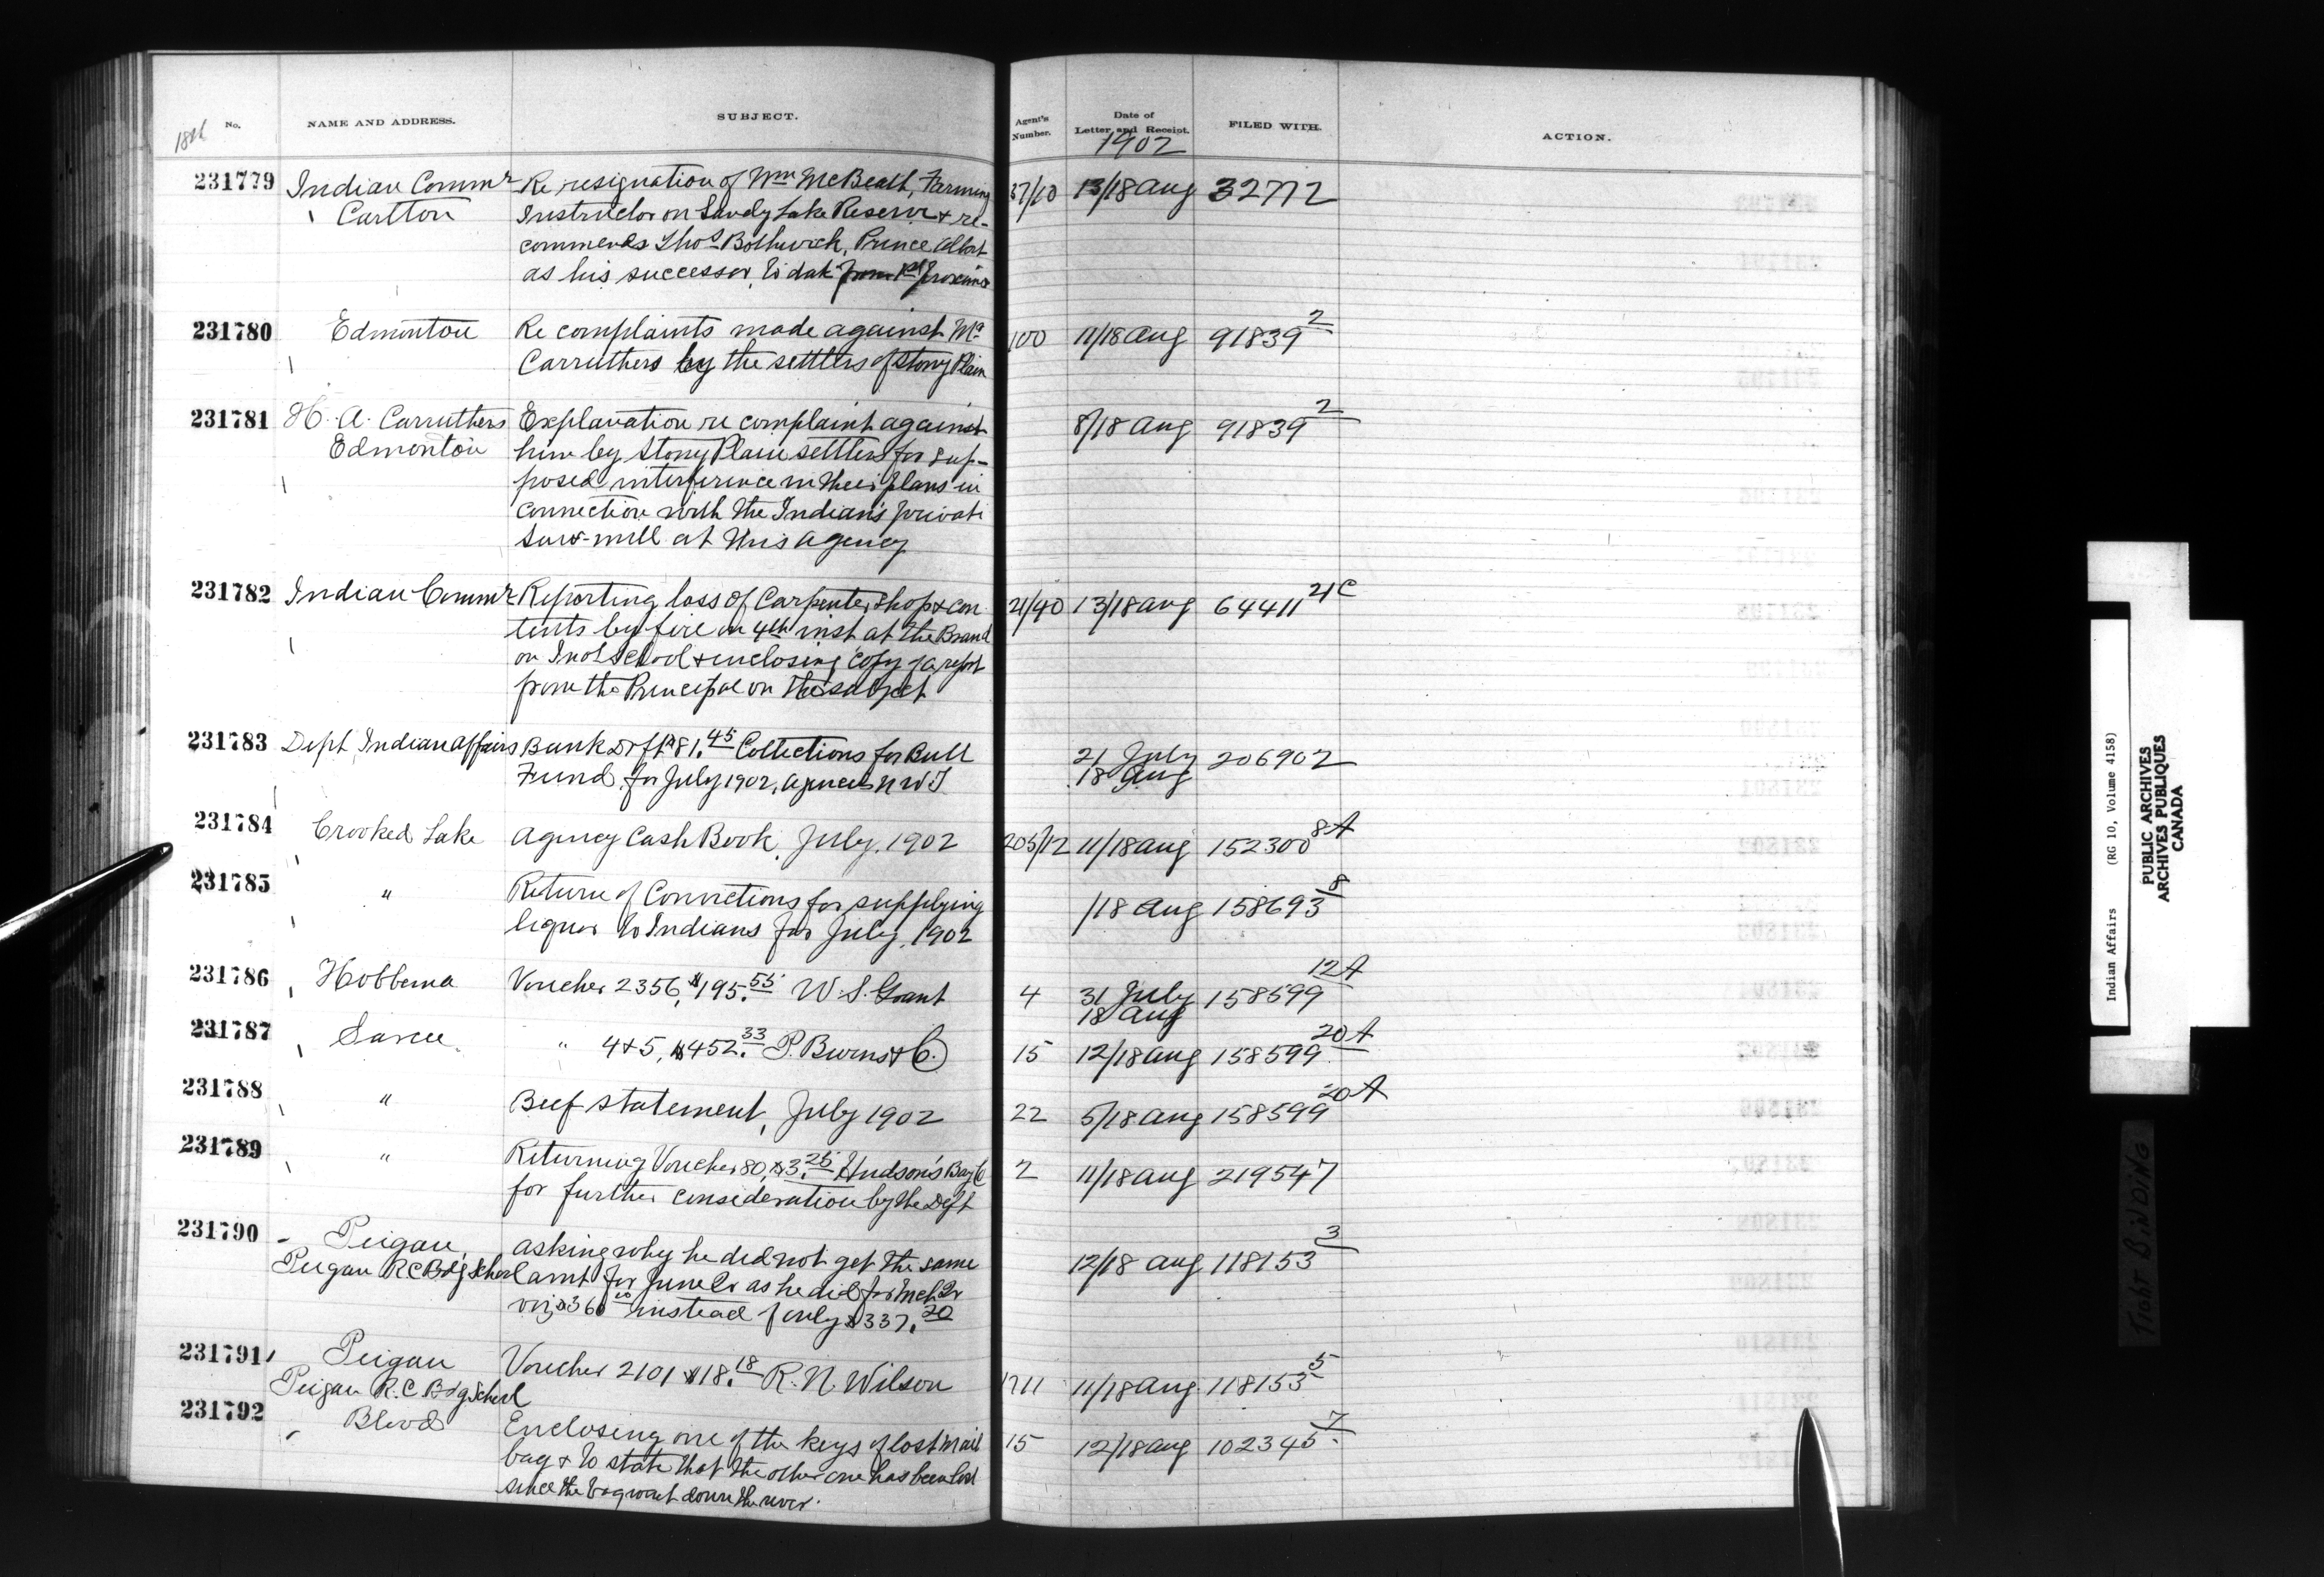 18th No. NAME AND ADDRESS. SUBJECT. Agent's Number. Date of Letter and Receipt. FILED WITH. ACTION.
1902
231779 Indian Commr Re resignation of Wm McBeath, Farming 37/10 13/18 Aug 32772
Carlton Instructor on Sandy Lake Reserve & re-
commends Thos Bothwick, Prince Albert
as his successor, to date from 1st proximo
231780 Edmonton Re complaints made against Mr 100 11/18 Aug 91839 2
Carruthers by the settlers of Stony Plain
231781 H. A. Carruthers Explanation re complaint against 8/18 Aug 91839 2
Edmonton him by Stony Plain settlers for sup-
posed interference in their plans in
connection with the Indian's private
saw-mill at this agency
231782 Indian Commr Reporting loss of Carpenter shop & con 21/40 13/18 Aug 64411 21C
tents by fire on 4th inst at the Brand
on Indl School & enclosing copy of a report
from the Principal on the subject
231783 Dept Indian Affairs Bank Drft $81.45 Collections for Bull 21 July 206902
Fund for July 1902, Agencies NWT 18 Aug
231784 Crooked Lake Agency Cash Book, July, 1902 205/12 11/18 Aug 152300 8A
231785 " Return of Convictions for supplying /18 Aug 158693 8
liquor to Indians for July, 1902
231786 Hobbema Voucher 2356, $195.55 W. S. Grant 4 31 July 158599 12A
18 Aug
231787 Sarcee " 4 & 5, $452.33 P. Burns & Co. 15 12/18 Aug 158599 20A
231788 " Beef statement, July 1902 22 5/18 Aug 158599 20A
231789 " Returning Voucher 80, $3.25 Hudson's Bay Co 2 11/18 Aug 219547
for further consideration by the Dept
231790 Peigan, asking why he did not get the same 12/18 Aug 118153 3
Peigan RC Bdg School amt for June Qr as he did for Mch Qr
viz $360 00 instead of only $337.20
231791 Peigan Voucher 2101 $18.18 R. N. Wilson 1711 11/18 Aug 118153 5
Peigan R.C Bdg School
231792 Blood Enclosing one of the keys of lost mail 15 12/18 Aug 102345 7
bag & to state that the other one has been lost
since the bag went down the river.
Indian Affairs (RG 10, Volume 4158)
PUBLIC ARCHIVES
ARCHIVES PUBLIQUES
CANADA
TIGHT BINDING